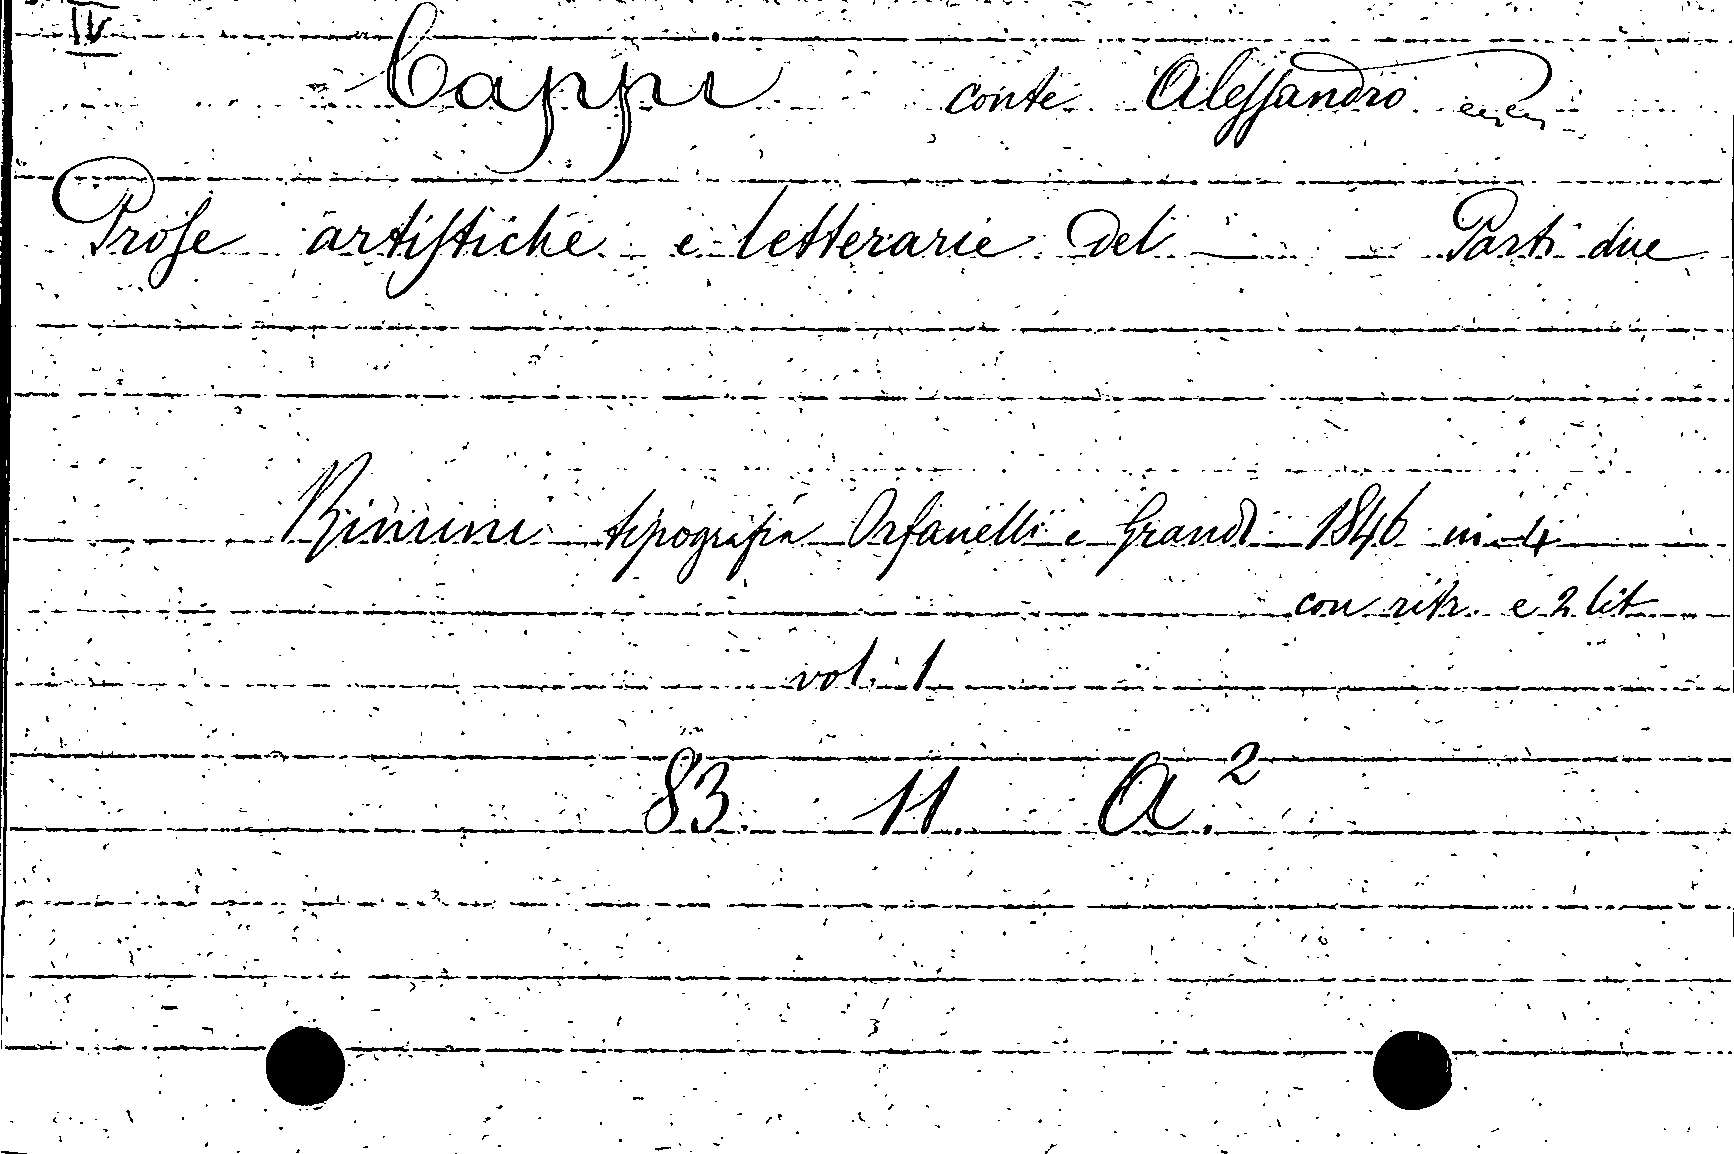 IV
Cappi conte Alessandro
Prose artistiche e letterarie del — Parti due
Rimini tipografia Orfanelli e Grandi 1846 in-4
con ritr. e 2 lit
vol. 1
83. 11. A.²